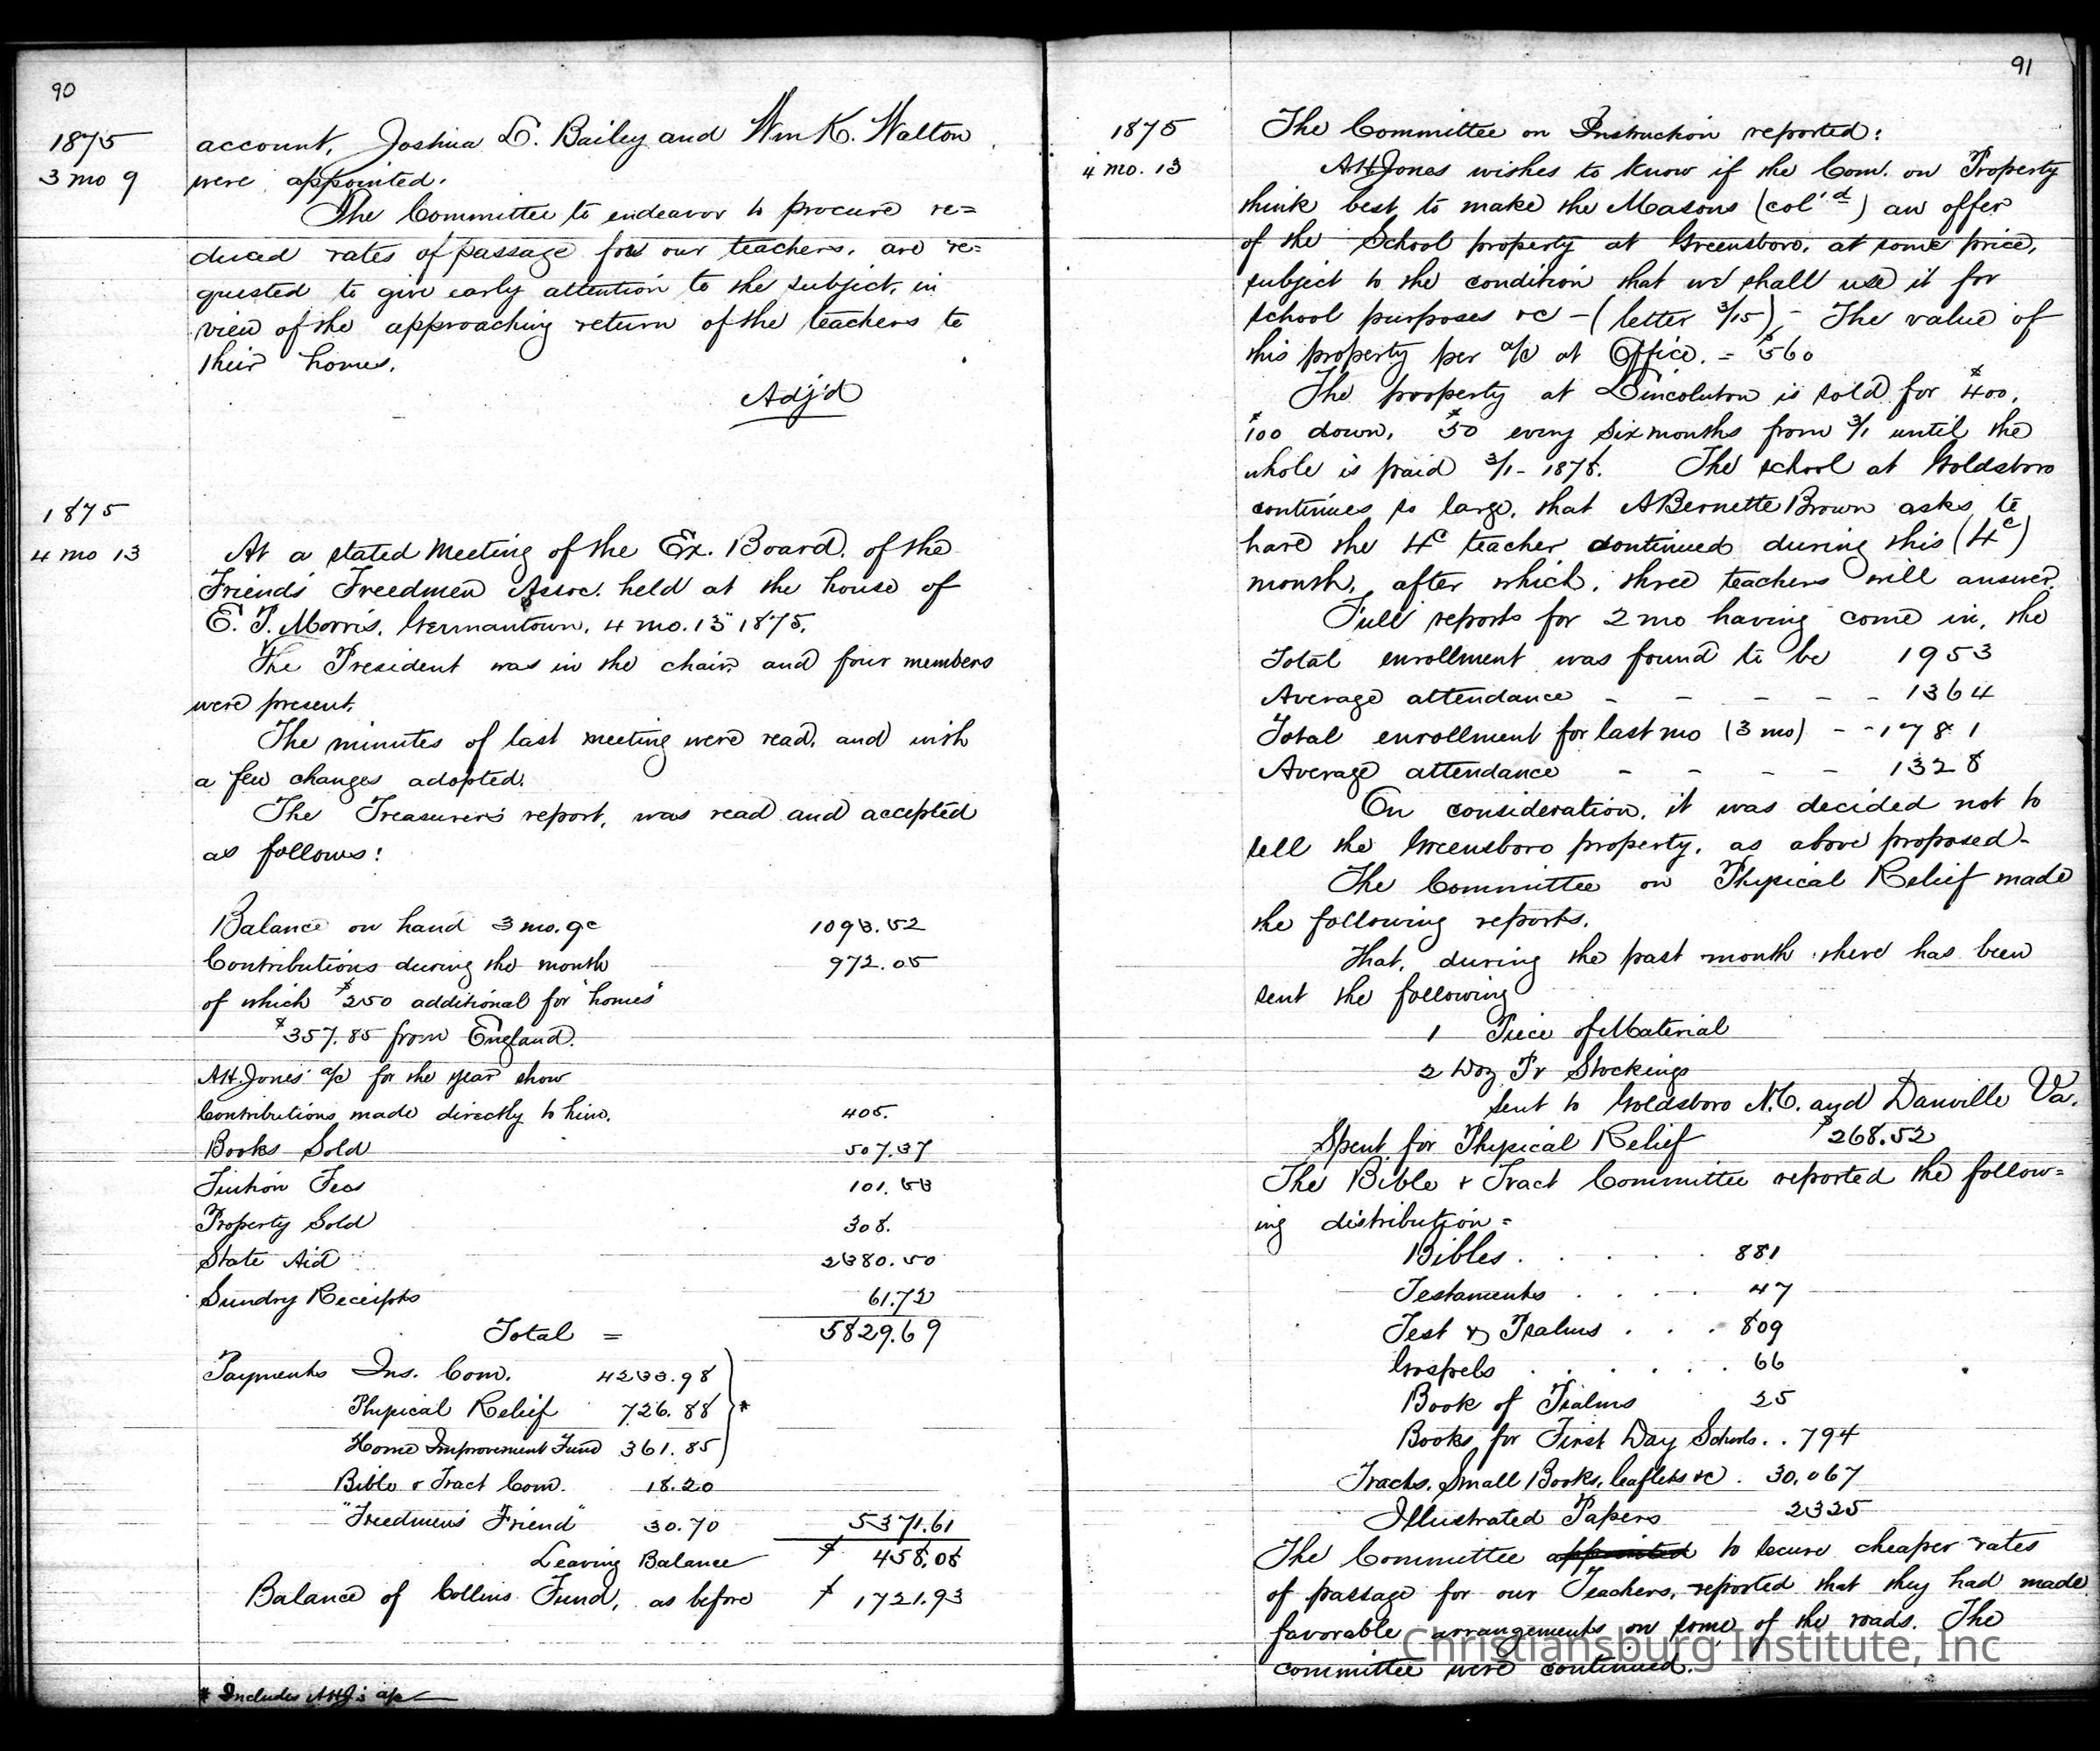 90
1875
3 mo 9
account, Joshua L. Bailey and Wm K. Walton
were appointed.
The Committee to endeavor to procure re=
duced rates of passage for our teachers, are re=
quested to give early attention to the subject, in
view of the approaching return of the teachers to
their homes.
Adj'd
1875
4 mo 13
At a stated meeting of the Ex. Board, of the
Friends Freedmen Assoc. held at the house of
E. T. Morris, Germantown, 4 mo. 13" 1875.
The President was in the chair, and four members
were present.
The minutes of last meeting were read, and with
a few changes adopted.
The Treasurer's report, was read and accepted
as follows:
Balance on hand 3 mo. 9c 1093.52
Contributions during the month 972.05
of which $250 additional for "homes"
$357.85 from England.
A H Jones' a/c for the year show
Contributions made directly to him. 405.
Books Sold 507.37
Tuition Fees 101.53
Property Sold 308.
State Aid 2380.50
Sundry Receipts 61.72
Total = 5829.69
Payments Ins. Com. 4233.98
Physical Relief 726.88 *
Home Improvement Fund 361.85
Bible & Tract Com. 18.20
"Freedmen's Friend" 30.70 5371.61
Leaving Balance $ 458.08
Balance of Collins Fund, as before $ 1721.93
* Includes AHJ's a/c
91
1875
4 mo. 13
The Committee on Instruction reported:
A H Jones wishes to know if the Com. on Property
think best to make the Masons (col'd) an offer
of the School property at Greensboro, at some price,
subject to the condition that we shall use it for
school purposes &c - (letter 3/15) - The value of
this property per a/c at Office. = $560
The property at Lincolnton is sold for $400,
$100 down, $50 every six months from 3/1 until the
whole is paid 3/1 - 1878. The school at Goldsboro
continues so large, that A Bernette Brown asks to
have the 4c teacher continued during this (4c)
month, after which, three teachers will answer.
Full reports for 2 mo having come in, the
Total enrollment was found to be 1953
Average attendance - - - - - 1364
Total enrollment for last mo (3 mo) - - 1781
Average attendance - - - - 1328
On consideration, it was decided not to
sell the Greensboro property, as above proposed -
The Committee on Physical Relief made
the following reports.
That, during the past month there has been
sent the following
1 Piece of Material
2 Doz Pr Stockings
sent to Goldsboro N.C. and Danville Va.
Spent for Physical Relief $268.52
The Bible & Tract Committee reported the follow=
ing distribution =
Bibles . . . . . 881
Testaments . . . . 47
Test & Psalms . . . 809
Gospels . . . . . . 66
Book of Psalms 25
Books for First Day Schools . . 794
Tracts, Small Books, leaflets &c . 30,067
Illustrated Papers 2325
The Committee appointed to secure cheaper rates
of passage for our Teachers, reported that they had made
favorable arrangements on some of the roads. The
committee were continued.
Christiansburg Institute, Inc